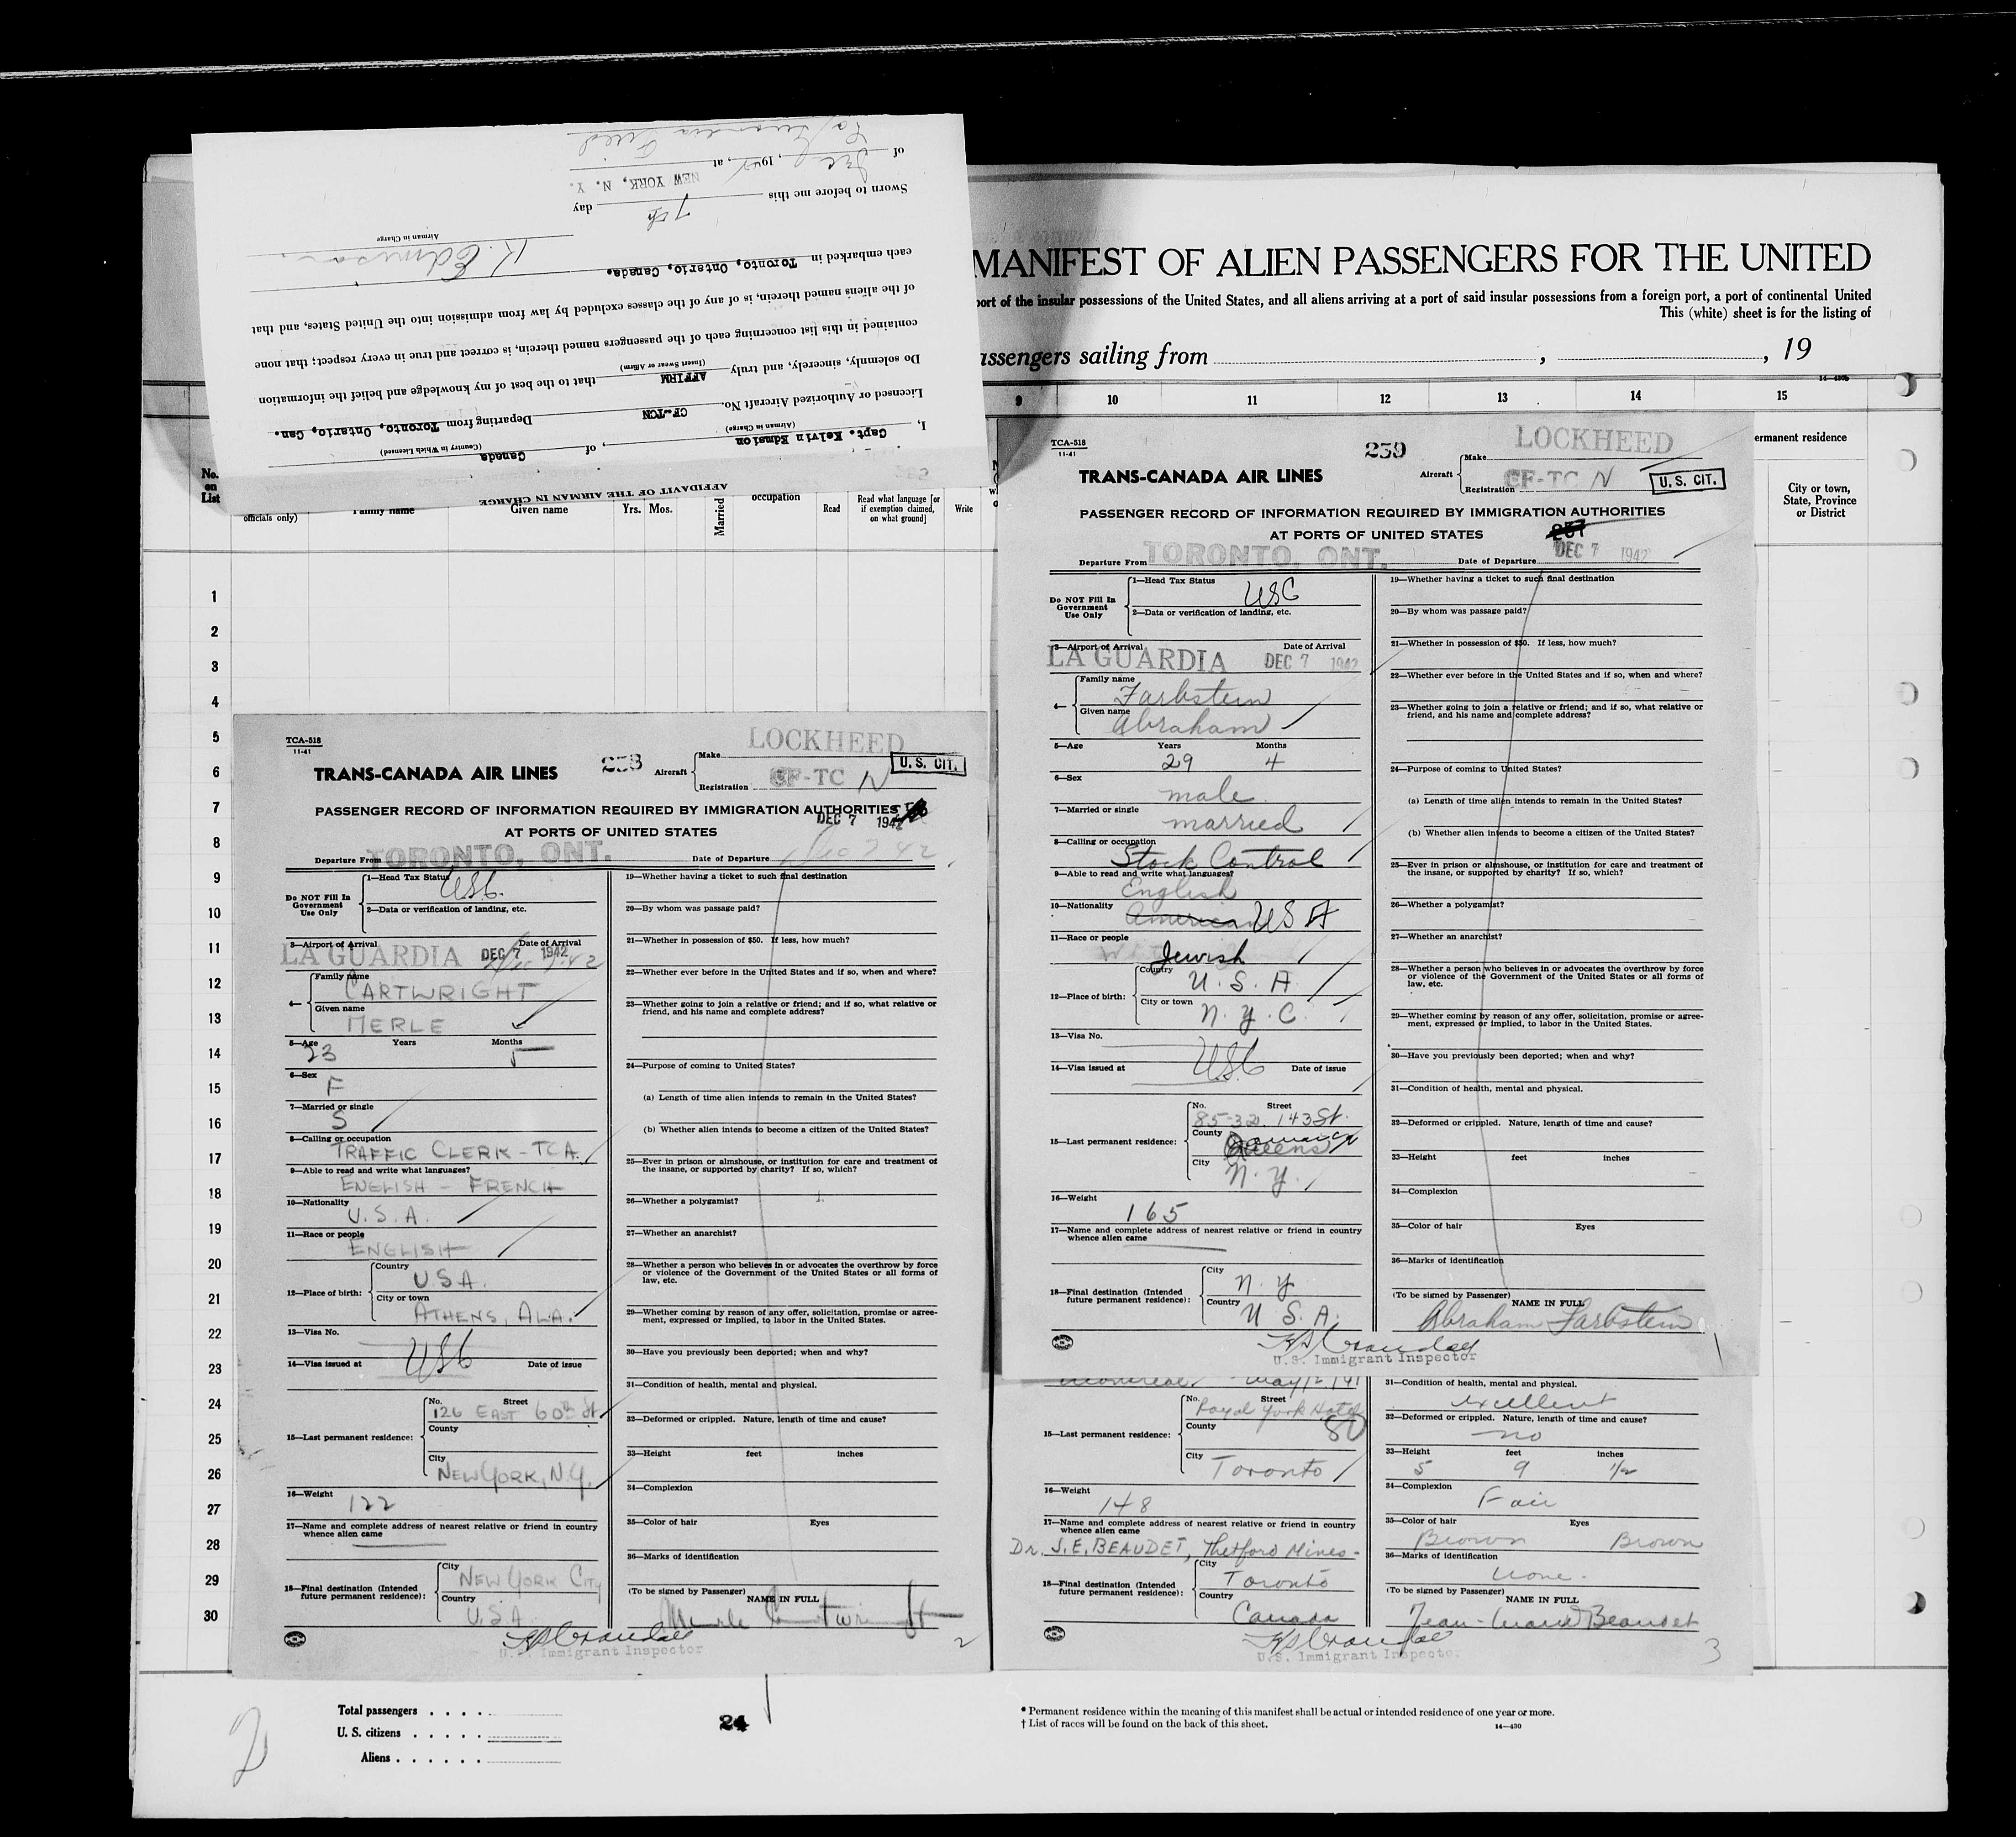 AFFIDAVIT OF THE AIRMAN IN CHARGE
I, Capt. Kelvin Edmsion, of Canada
(Airman in Charge) (Country in Which Licensed)
Licensed or Authorized Aircraft No. CF-TCN Departing from Toronto, Ontario, Can.
Do solemnly, sincerely, and truly AFFIRM that to the best of my knowledge and belief the information
(Insert Swear or Affirm)
contained in this list concerning each of the passengers named therein, is correct and true in every respect; that none
of the aliens named therein, is of any of the classes excluded by law from admission into the United States, and that
each embarked in Toronto, Ontario, Canada.
K. Edmison.
Airman in Charge
Sworn to before me this 7th day
of Dec, 1942, at NEW YORK, N. Y.
MANIFEST OF ALIEN PASSENGERS FOR THE UNITED
port of the insular possessions of the United States, and all aliens arriving at a port of said insular possessions from a foreign port, a port of continental United
This (white) sheet is for the listing of
assengers sailing from , , 19
14—430b
9 10 11 12 13 14 15
ermanent residence
City or town,
State, Province
or District
No.
on
List
officials only)
Family name
Given name
Yrs. Mos.
Married
occupation
Read
Read what language [or
if exemption claimed,
on what ground]
Write
1
2
3
4
5
6
7
8
9
10
11
12
13
14
15
16
17
18
19
20
21
22
23
24
25
26
27
28
29
30
TCA-518
11-41
238
LOCKHEED
TRANS-CANADA AIR LINES
Aircraft Make
Registration CF-TC N
U. S. CIT.
PASSENGER RECORD OF INFORMATION REQUIRED BY IMMIGRATION AUTHORITIES
AT PORTS OF UNITED STATES
DEC 7 1942
Departure From TORONTO, ONT. Date of Departure Dec 7 42
Do NOT Fill In
Government
Use Only
1—Head Tax Status USC.
2—Data or verification of landing, etc.
3—Airport of Arrival Date of Arrival
LA GUARDIA DEC 7 1942
4— Family name CARTWRIGHT
Given name MERLE
5—Age 23 Years Months 5
6—Sex F
7—Married or single S
8—Calling or occupation
TRAFFIC CLERK - TCA.
9—Able to read and write what languages?
ENGLISH - FRENCH
10—Nationality U.S.A.
11—Race or people ENGLISH
12—Place of birth: Country USA.
City or town ATHENS, ALA.
13—Visa No.
14—Visa issued at USC Date of issue
15—Last permanent residence: No. Street 126 EAST 60th St.
County
City NEW YORK, N.Y.
16—Weight 122
17—Name and complete address of nearest relative or friend in country
whence alien came
18—Final destination (Intended
future permanent residence): City NEW YORK CITY
Country U.S.A.
U.S. Immigrant Inspector
19—Whether having a ticket to such final destination
20—By whom was passage paid?
21—Whether in possession of $50. If less, how much?
22—Whether ever before in the United States and if so, when and where?
23—Whether going to join a relative or friend; and if so, what relative or
friend, and his name and complete address?
24—Purpose of coming to United States?
(a) Length of time alien intends to remain in the United States?
(b) Whether alien intends to become a citizen of the United States?
25—Ever in prison or almshouse, or institution for care and treatment of
the insane, or supported by charity? If so, which?
26—Whether a polygamist?
27—Whether an anarchist?
28—Whether a person who believes in or advocates the overthrow by force
or violence of the Government of the United States or all forms of
law, etc.
29—Whether coming by reason of any offer, solicitation, promise or agree-
ment, expressed or implied, to labor in the United States.
30—Have you previously been deported; when and why?
31—Condition of health, mental and physical.
32—Deformed or crippled. Nature, length of time and cause?
33—Height feet inches
34—Complexion
35—Color of hair Eyes
36—Marks of identification
(To be signed by Passenger)
NAME IN FULL
Merle Cartwright
2
TCA-518
11-41
239
LOCKHEED
TRANS-CANADA AIR LINES
Aircraft Make
Registration CF-TC N
U. S. CIT.
PASSENGER RECORD OF INFORMATION REQUIRED BY IMMIGRATION AUTHORITIES
AT PORTS OF UNITED STATES
237
Departure From TORONTO, ONT. Date of Departure DEC 7 1942
Do NOT Fill In
Government
Use Only
1—Head Tax Status USC
2—Data or verification of landing, etc.
3—Airport of Arrival Date of Arrival
LA GUARDIA DEC 7 1942
4— Family name Farbstein
Given name Abraham
5—Age Years 29 Months 4
6—Sex male
7—Married or single married
8—Calling or occupation
Stock Control
9—Able to read and write what languages?
English
10—Nationality American USA
11—Race or people Jewish
12—Place of birth: Country U.S.A.
City or town N.Y.C.
13—Visa No.
14—Visa issued at USC Date of issue
15—Last permanent residence: No. Street 85-32 143 St.
County Queens Jamaica
City N.Y.
16—Weight 165
17—Name and complete address of nearest relative or friend in country
whence alien came
18—Final destination (Intended
future permanent residence): City N.Y
Country U.S.A.
U.S. Immigrant Inspector
19—Whether having a ticket to such final destination
20—By whom was passage paid?
21—Whether in possession of $50. If less, how much?
22—Whether ever before in the United States and if so, when and where?
23—Whether going to join a relative or friend; and if so, what relative or
friend, and his name and complete address?
24—Purpose of coming to United States?
(a) Length of time alien intends to remain in the United States?
(b) Whether alien intends to become a citizen of the United States?
25—Ever in prison or almshouse, or institution for care and treatment of
the insane, or supported by charity? If so, which?
26—Whether a polygamist?
27—Whether an anarchist?
28—Whether a person who believes in or advocates the overthrow by force
or violence of the Government of the United States or all forms of
law, etc.
29—Whether coming by reason of any offer, solicitation, promise or agree-
ment, expressed or implied, to labor in the United States.
30—Have you previously been deported; when and why?
31—Condition of health, mental and physical.
32—Deformed or crippled. Nature, length of time and cause?
33—Height feet inches
34—Complexion
35—Color of hair Eyes
36—Marks of identification
(To be signed by Passenger)
NAME IN FULL
Abraham Farbstein
1
Montreal May 12 1941
15—Last permanent residence: No. Street Royal York Hotel
80
County
City Toronto
16—Weight 148
17—Name and complete address of nearest relative or friend in country
whence alien came
Dr. J.E. BEAUDET, Thetford Mines-
18—Final destination (Intended
future permanent residence): City Toronto
Country Canada
U.S. Immigrant Inspector
31—Condition of health, mental and physical.
excellent
32—Deformed or crippled. Nature, length of time and cause?
no
33—Height 5 feet 9 inches 1/2
34—Complexion Fair
35—Color of hair Brown Eyes Brown
36—Marks of identification none.
(To be signed by Passenger)
NAME IN FULL
Jean-Marie Beaudet
3
Total passengers
U. S. citizens
Aliens
2
24
* Permanent residence within the meaning of this manifest shall be actual or intended residence of one year or more.
† List of races will be found on the back of this sheet.
14—430